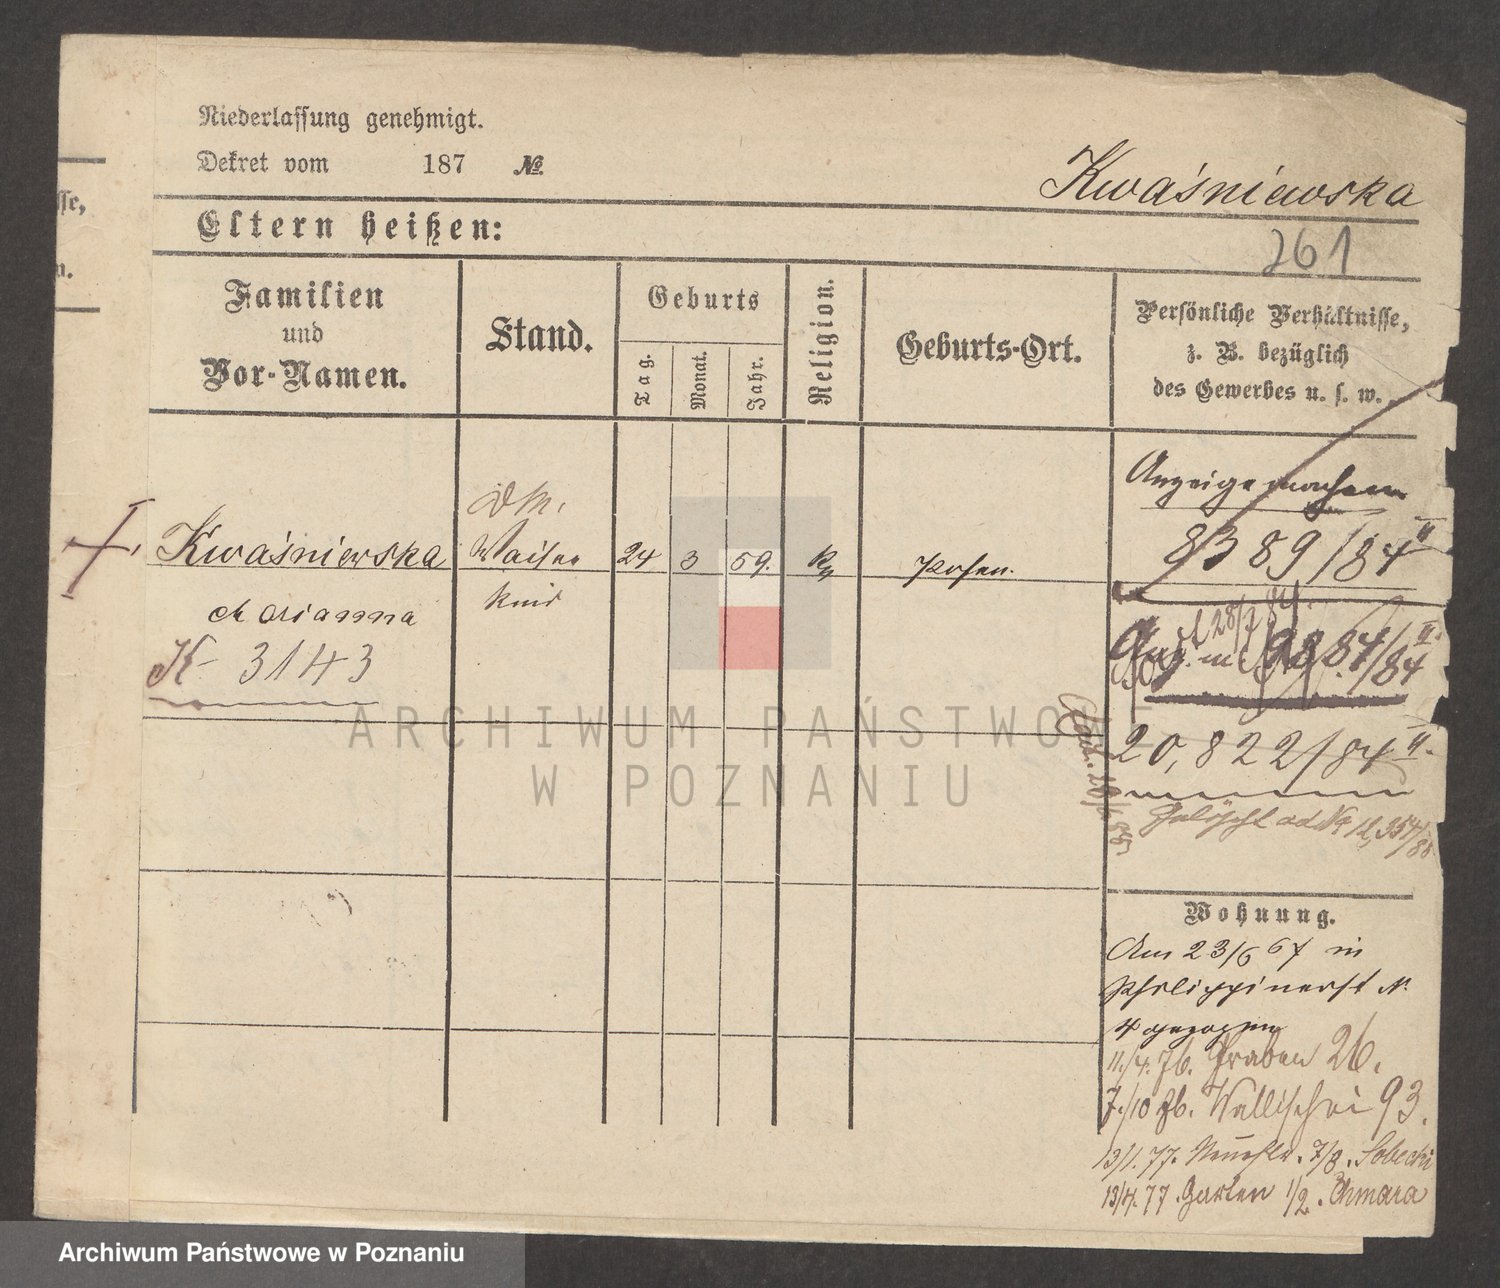 Niederlassung genehmigt.
Dekret vom 187 №
Kwaśniewska
Eltern heißen:
261
sse,
n.
Familien
und
Vor-Namen.
Stand.
Geburts
Tag.
Monat.
Jahr.
Religion.
Geburts-Ort.
Persönliche Verhältnisse,
z. B. bezüglich
des Gewerbes u. s. w.
Anzeige machen
8389/84 II
Kwaśniewska
Waisen
kind
24 3 59. Posen.
Marianna
K 3143
28/7 84.
9887/84 II.
20,822/84 II.
Gelöscht ad № 12,354/88
Wohnung.
Am 23/6 67 in
Philippinerst N.
4 gezogen
11./4. 76. Graben 26.
7./10 76. Wallischei 93.
13/1. 77. 7/8. Sobecki
13/4. 77. Garten 1/2. Chmara
ARCHIWUM PAŃSTWOWE
W POZNANIU
Archiwum Państwowe w Poznaniu